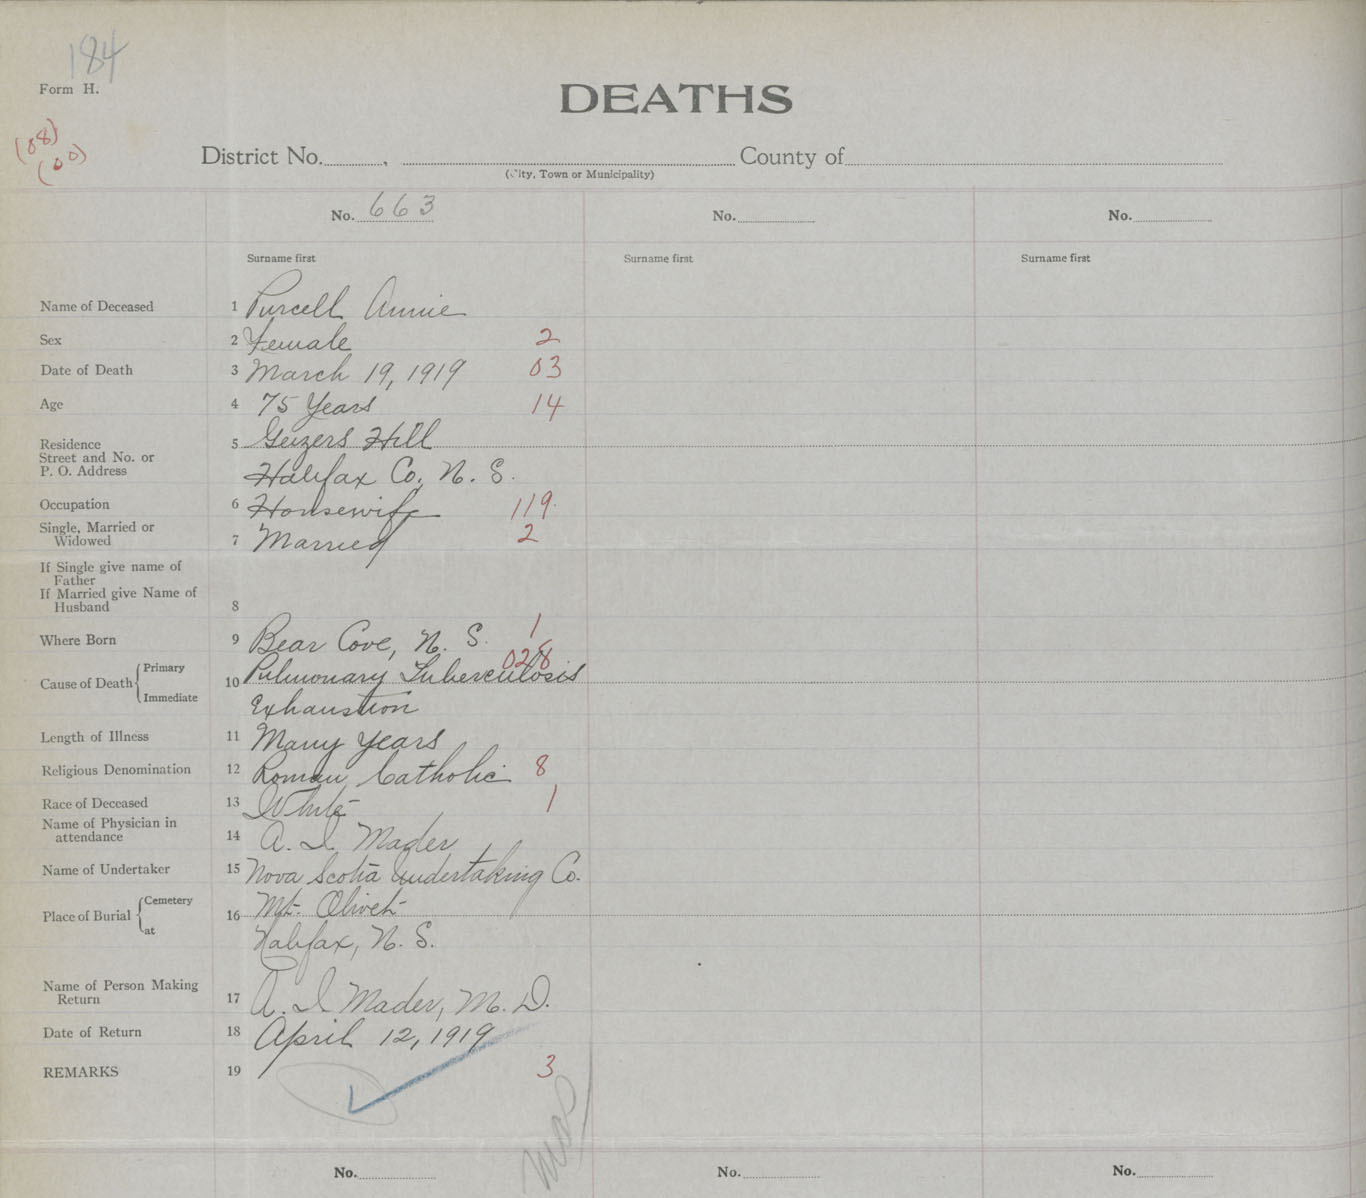 184
Form H.
(08)
(00)
DEATHS
District No. , County of
(City, Town or Municipality)
No. 663 No. No.
Surname first Surname first Surname first
Name of Deceased 1 Purcell Annie
Sex 2 Female 2
Date of Death 3 March 19, 1919 03
Age 4 75 Years 14
Residence 5 Geizers Hill
Street and No. or
P. O. Address Halifax Co, N. S.
Occupation 6 Housewife 119
Single, Married or
Widowed 7 Married 2
If Single give name of
Father
If Married give Name of
Husband 8
Where Born 9 Bear Cove, N. S. 1
028
Cause of Death Primary 10 Pulmonary Tuberculosis
Immediate Exhaustion
Length of Illness 11 Many years
Religious Denomination 12 Roman Catholic 8
Race of Deceased 13 White 1
Name of Physician in
attendance 14 A. I. Mader
Name of Undertaker 15 Nova Scotia Undertaking Co.
Place of Burial Cemetery 16 Mt. Olivet
at Halifax, N. S.
Name of Person Making
Return 17 A. I Mader, M. D.
Date of Return 18 April 12, 1919
REMARKS 19 3
No. No. No.